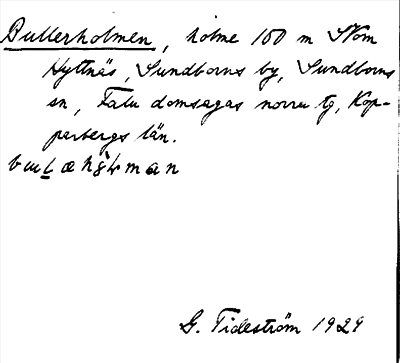 Bullerholmen, holme 150 m SV om
Hyttnäs, Sundborns by, Sundborns
sn, Falu domsagas norra tg, Kop-
parbergs län.
G. Tideström 1929